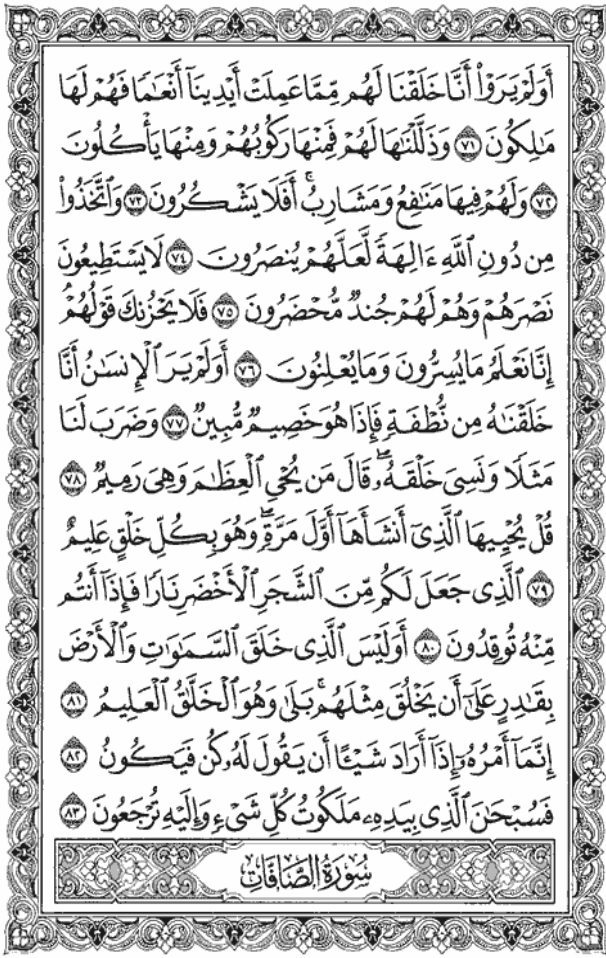 أَوَلَمْ يَرَوْا۟ أَنَّا خَلَقْنَا لَهُم مِّمَّا عَمِلَتْ أَيْدِينَآ أَنْعَٰمًا فَهُمْ لَهَا
مَٰلِكُونَ ٧١ وَذَلَّلْنَٰهَا لَهُمْ فَمِنْهَا رَكُوبُهُمْ وَمِنْهَا يَأْكُلُونَ
٧٢ وَلَهُمْ فِيهَا مَنَٰفِعُ وَمَشَارِبُ ۚ أَفَلَا يَشْكُرُونَ ٧٣ وَٱتَّخَذُوا۟
مِن دُونِ ٱللَّهِ ءَالِهَةً لَّعَلَّهُمْ يُنصَرُونَ ٧٤ لَا يَسْتَطِيعُونَ
نَصْرَهُمْ وَهُمْ لَهُمْ جُندٌ مُّحْضَرُونَ ٧٥ فَلَا يَحْزُنكَ قَوْلُهُمْ ۘ
إِنَّا نَعْلَمُ مَا يُسِرُّونَ وَمَا يُعْلِنُونَ ٧٦ أَوَلَمْ يَرَ ٱلْإِنسَٰنُ أَنَّا
خَلَقْنَٰهُ مِن نُّطْفَةٍ فَإِذَا هُوَ خَصِيمٌ مُّبِينٌ ٧٧ وَضَرَبَ لَنَا
مَثَلًا وَنَسِىَ خَلْقَهُۥ ۖ قَالَ مَن يُحْىِ ٱلْعِظَٰمَ وَهِىَ رَمِيمٌ ٧٨
قُلْ يُحْيِيهَا ٱلَّذِىٓ أَنشَأَهَآ أَوَّلَ مَرَّةٍ ۖ وَهُوَ بِكُلِّ خَلْقٍ عَلِيمٌ
٧٩ ٱلَّذِى جَعَلَ لَكُم مِّنَ ٱلشَّجَرِ ٱلْأَخْضَرِ نَارًا فَإِذَآ أَنتُم
مِّنْهُ تُوقِدُونَ ٨٠ أَوَلَيْسَ ٱلَّذِى خَلَقَ ٱلسَّمَٰوَٰتِ وَٱلْأَرْضَ
بِقَٰدِرٍ عَلَىٰٓ أَن يَخْلُقَ مِثْلَهُم ۚ بَلَىٰ وَهُوَ ٱلْخَلَّٰقُ ٱلْعَلِيمُ ٨١
إِنَّمَآ أَمْرُهُۥٓ إِذَآ أَرَادَ شَيْـًٔا أَن يَقُولَ لَهُۥ كُن فَيَكُونُ ٨٢
فَسُبْحَٰنَ ٱلَّذِى بِيَدِهِۦ مَلَكُوتُ كُلِّ شَىْءٍ وَإِلَيْهِ تُرْجَعُونَ ٨٣
سُورَةُ الصَّافَّاتِ